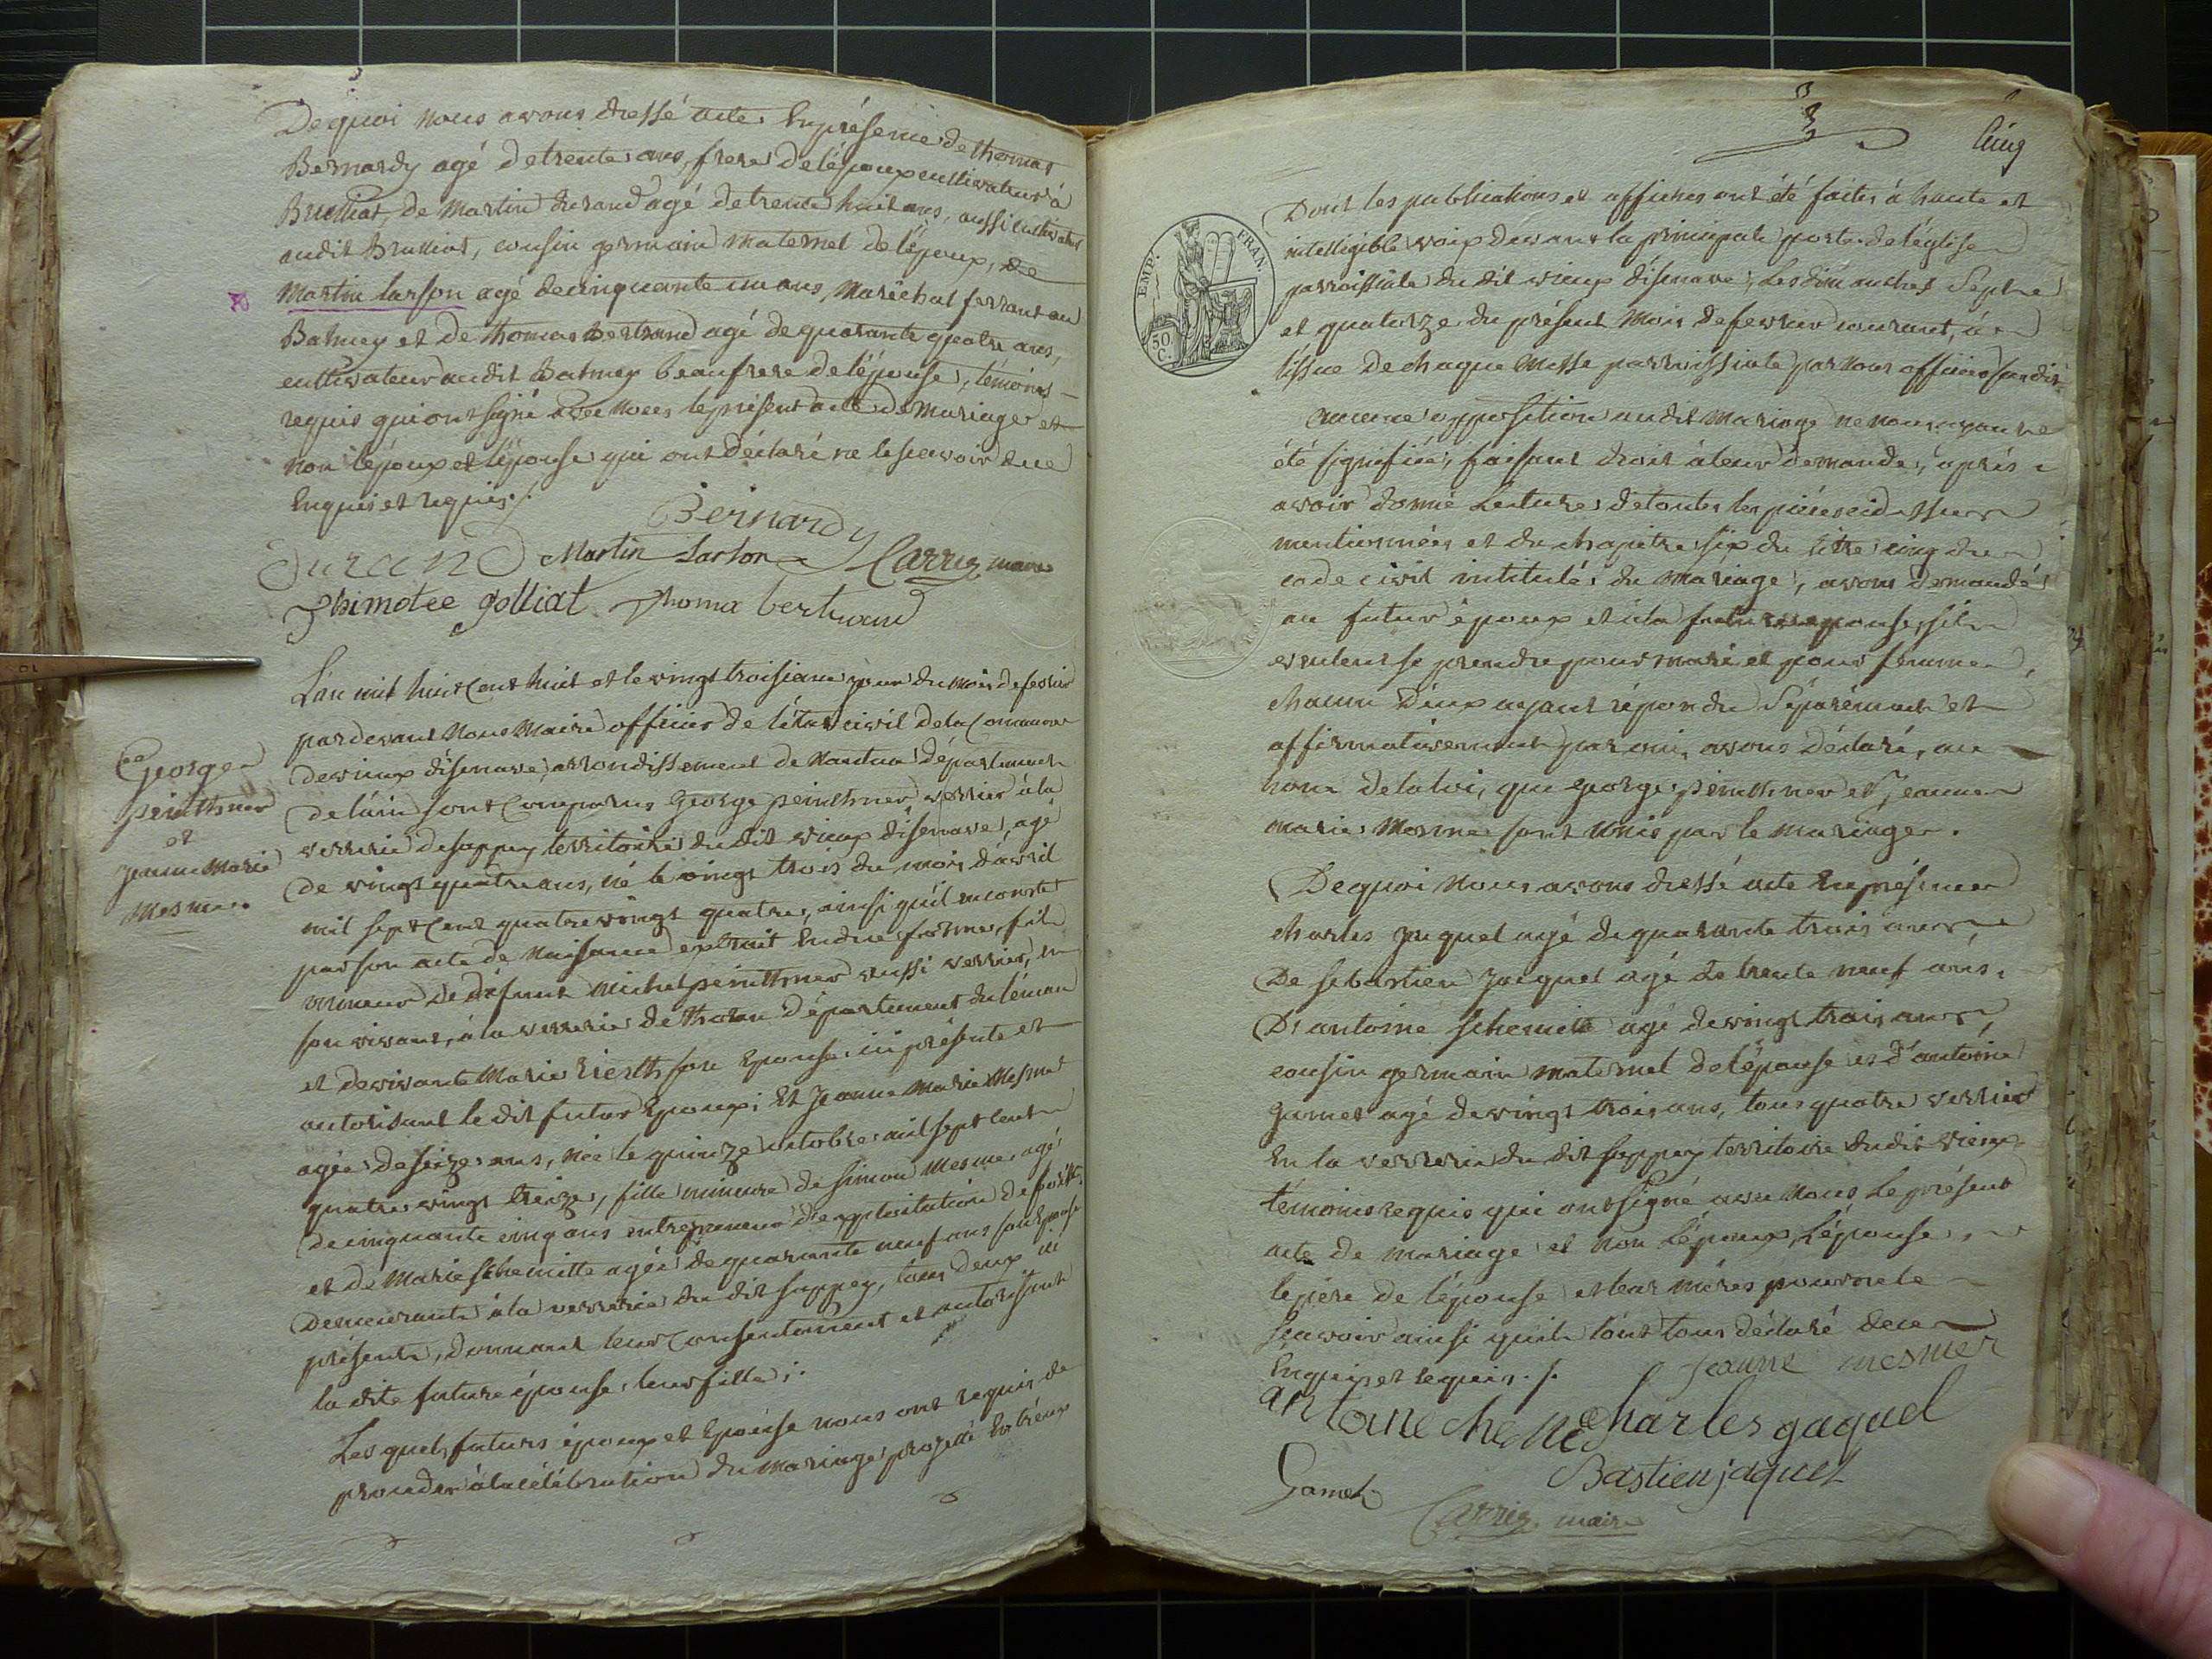 De quoi nous avons dressé acte En présence de thomas
Bernardy agé de trente ans, frere de lépoux cultivateur à
de Martin durand agé de trente huit ans, aussi cultivateur
audit cousin germain maternel de lépoux, de
Martin larson agé de cinquante un ans, Maréchal ferrant au
Balmey et de thomas Bertrand agé de quarante quatre ans,
cultivateur audit Balmey beaufrere de lépouse, témoins
requis qui ont signé avec nous le présent acte de Mariage et
non lépoux et lépouse qui ont déclaré ne le scavoir de ce
Enquis et requis ./.
Bernardy
Durand Martin Larson Carrig maire
thimotee golliat thoma bertrand
L'an mil huit Cent huit et le vingt troisieme jour du mois de fevrier
pardevant Nous Maire officier de létat civil de la Commune
de vieux disenave, arrondissement de Nantua département
de lain sont Comparus George peinthner verrier à la
verrerie de sappey territoire du dit vieux disenave, agé
de vingt quatre ans, né le vingt trois du mois davril
mil sept Cent quatre vingt quatre, ainsi quil en conste
par son acte de Naissance extrait En due forme, fils
mineur de défunt Michel peinthner aussi verrier, en
son vivant, à la verrerie de thoran département du léman
et de vivante Marie rierth son Epouse ici présente et
autorisant le dit futur Epoux; Et Jeanne Marie Mesmer
agée de seize ans, née le quinze octobre mil sept Cent
quatre vingt treize, fille mineure de simon Mesmer agé
de cinquante cinq ans entrepreneur d'exploitation de forêts
et de Marie schemitte agée de quarante neuf ans son Epouse
Demeurants à la verrerie du dit sappey, tous deux ici
présents, donnant leur Consentement et autorisant
la dite future épouse leur fille;.
Les quels futurs époux et Epouse nous ont requis de
proceder à la célébration du mariage projetté Entreux
George
peinthner
et
jeanne Marie
Mesmer
Cinq
EMP. FRAN.
50 C.
Dont les publications et affiches ont été faites à haute et
intelligible voix devant la principale porte de léglise
parroissiale du dit vieux disenave, Les dimanches Sept
et quatorze du présent Mois de fevrier courant, à
lissue de chaque Messe parroissiale par nous officier susdit
Aucune opposition audit Mariage ne nous ayant
été signifiée, faisant droit à leur demande, après
avoir donné Lecture de toutes les pièces cidessus
mentionnées et du chapitre six du titre cinq du
code civil intitulé du Mariage, avons demandé
au futur époux et à la future epouse, sils
veulent se prendre pour mari et pour femme
chacun Deux ayant répondu Séparément et
affirmativement par oui, avons Déclaré, au
nom de la loi, que george peinthner et Jeanne
marie Mesmer sont Unis par le Mariage.
De quoi Nous avons dressé acte En présence
charles jaquet agé de quarante trois ans
De sebastien jacquet agé de trente neuf ans,
D'antoine schemitte agé de vingt trois ans,
cousin germain maternel de lépouse et d'antoine
gamet agé de vingt trois ans, tous quatre verriers
En la verrerie du dit sappey territoire dudit vieux
témoins requis qui ont signé avec Nous Le présent
acte de mariage et non Lépoux, Lépouse,
le père de l'épouse et leur mères pour ne le
scavoir ainsi quils lont tous déclaré de ce
Enquis et requis. /. Jeanne mesmer
Charles gaquel
Gamet Bastien jaquet
Carrig maire